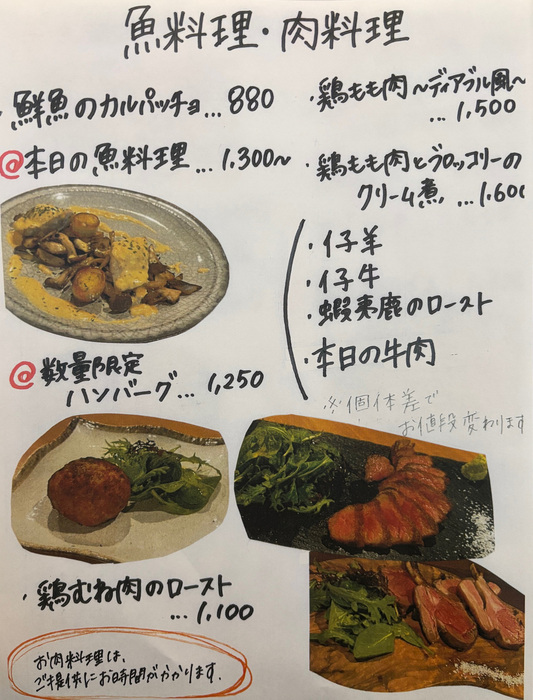 魚料理・肉料理
・鮮魚のカルパッチョ…880
@本日の魚料理…1,300〜
@数量限定
ハンバーグ…1,250
・鶏むね肉のロースト
…1,100
お肉料理は、
ご提供にお時間がかかります。
・鶏もも肉〜ディアブル風〜
…1,500
・鶏もも肉とブロッコリーの
クリーム煮…1,600
・仔羊
・仔牛
・蝦夷鹿のロースト
・本日の牛肉
※個体差で
お値段変わります